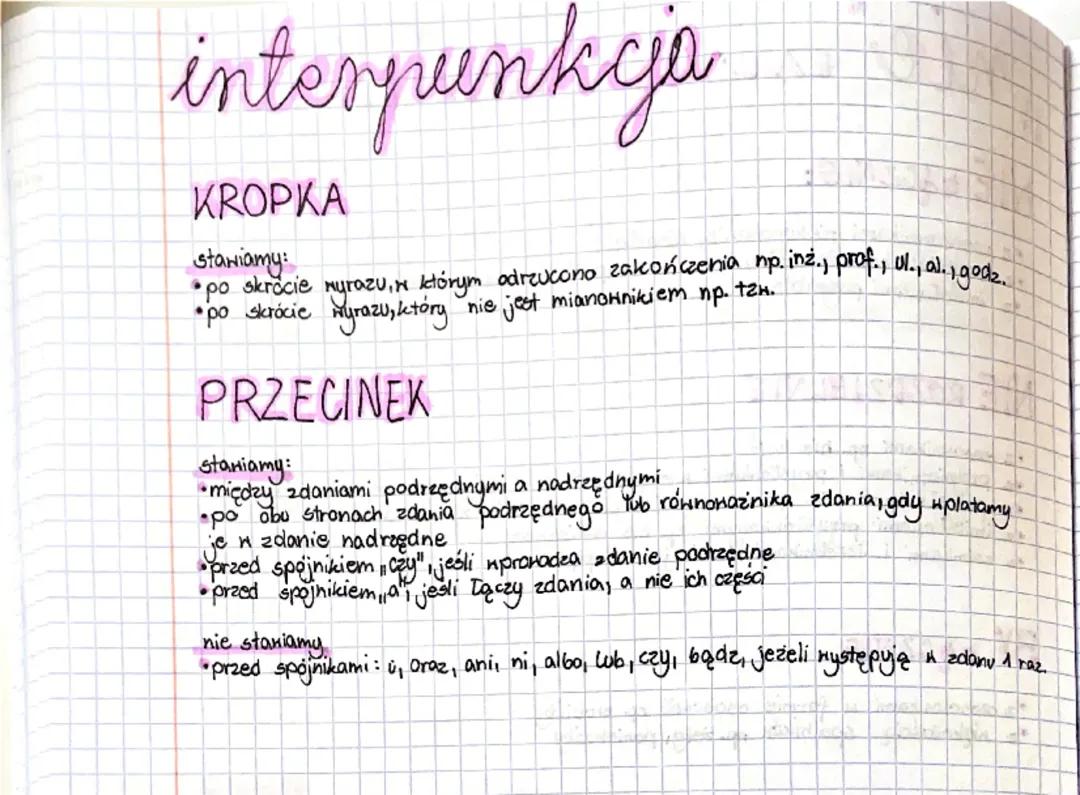 interpunkcja
KROPKA
stawiamy:
•po skrócie wyrazu, w którym odrzucono zakończenia np. inż., prof., ul., al., godz.
•po skrócie wyrazu, który nie jest mianownikiem np. tzw.
PRZECINEK
stawiamy:
•między zdaniami podrzędnymi a nadrzędnymi
•po obu stronach zdania podrzędnego lub równoważnika zdania, gdy wplatamy
je w zdanie nadrzędne
•przed spójnikiem „czy", jeśli wprowadza zdanie podrzędne
•przed spójnikiem „a", jeśli łączy zdania, a nie ich części
nie stawiamy
•przed spójnikami: i, oraz, ani, ni, albo, lub, czy, bądź, jeżeli występują w zdanu 1 raz.